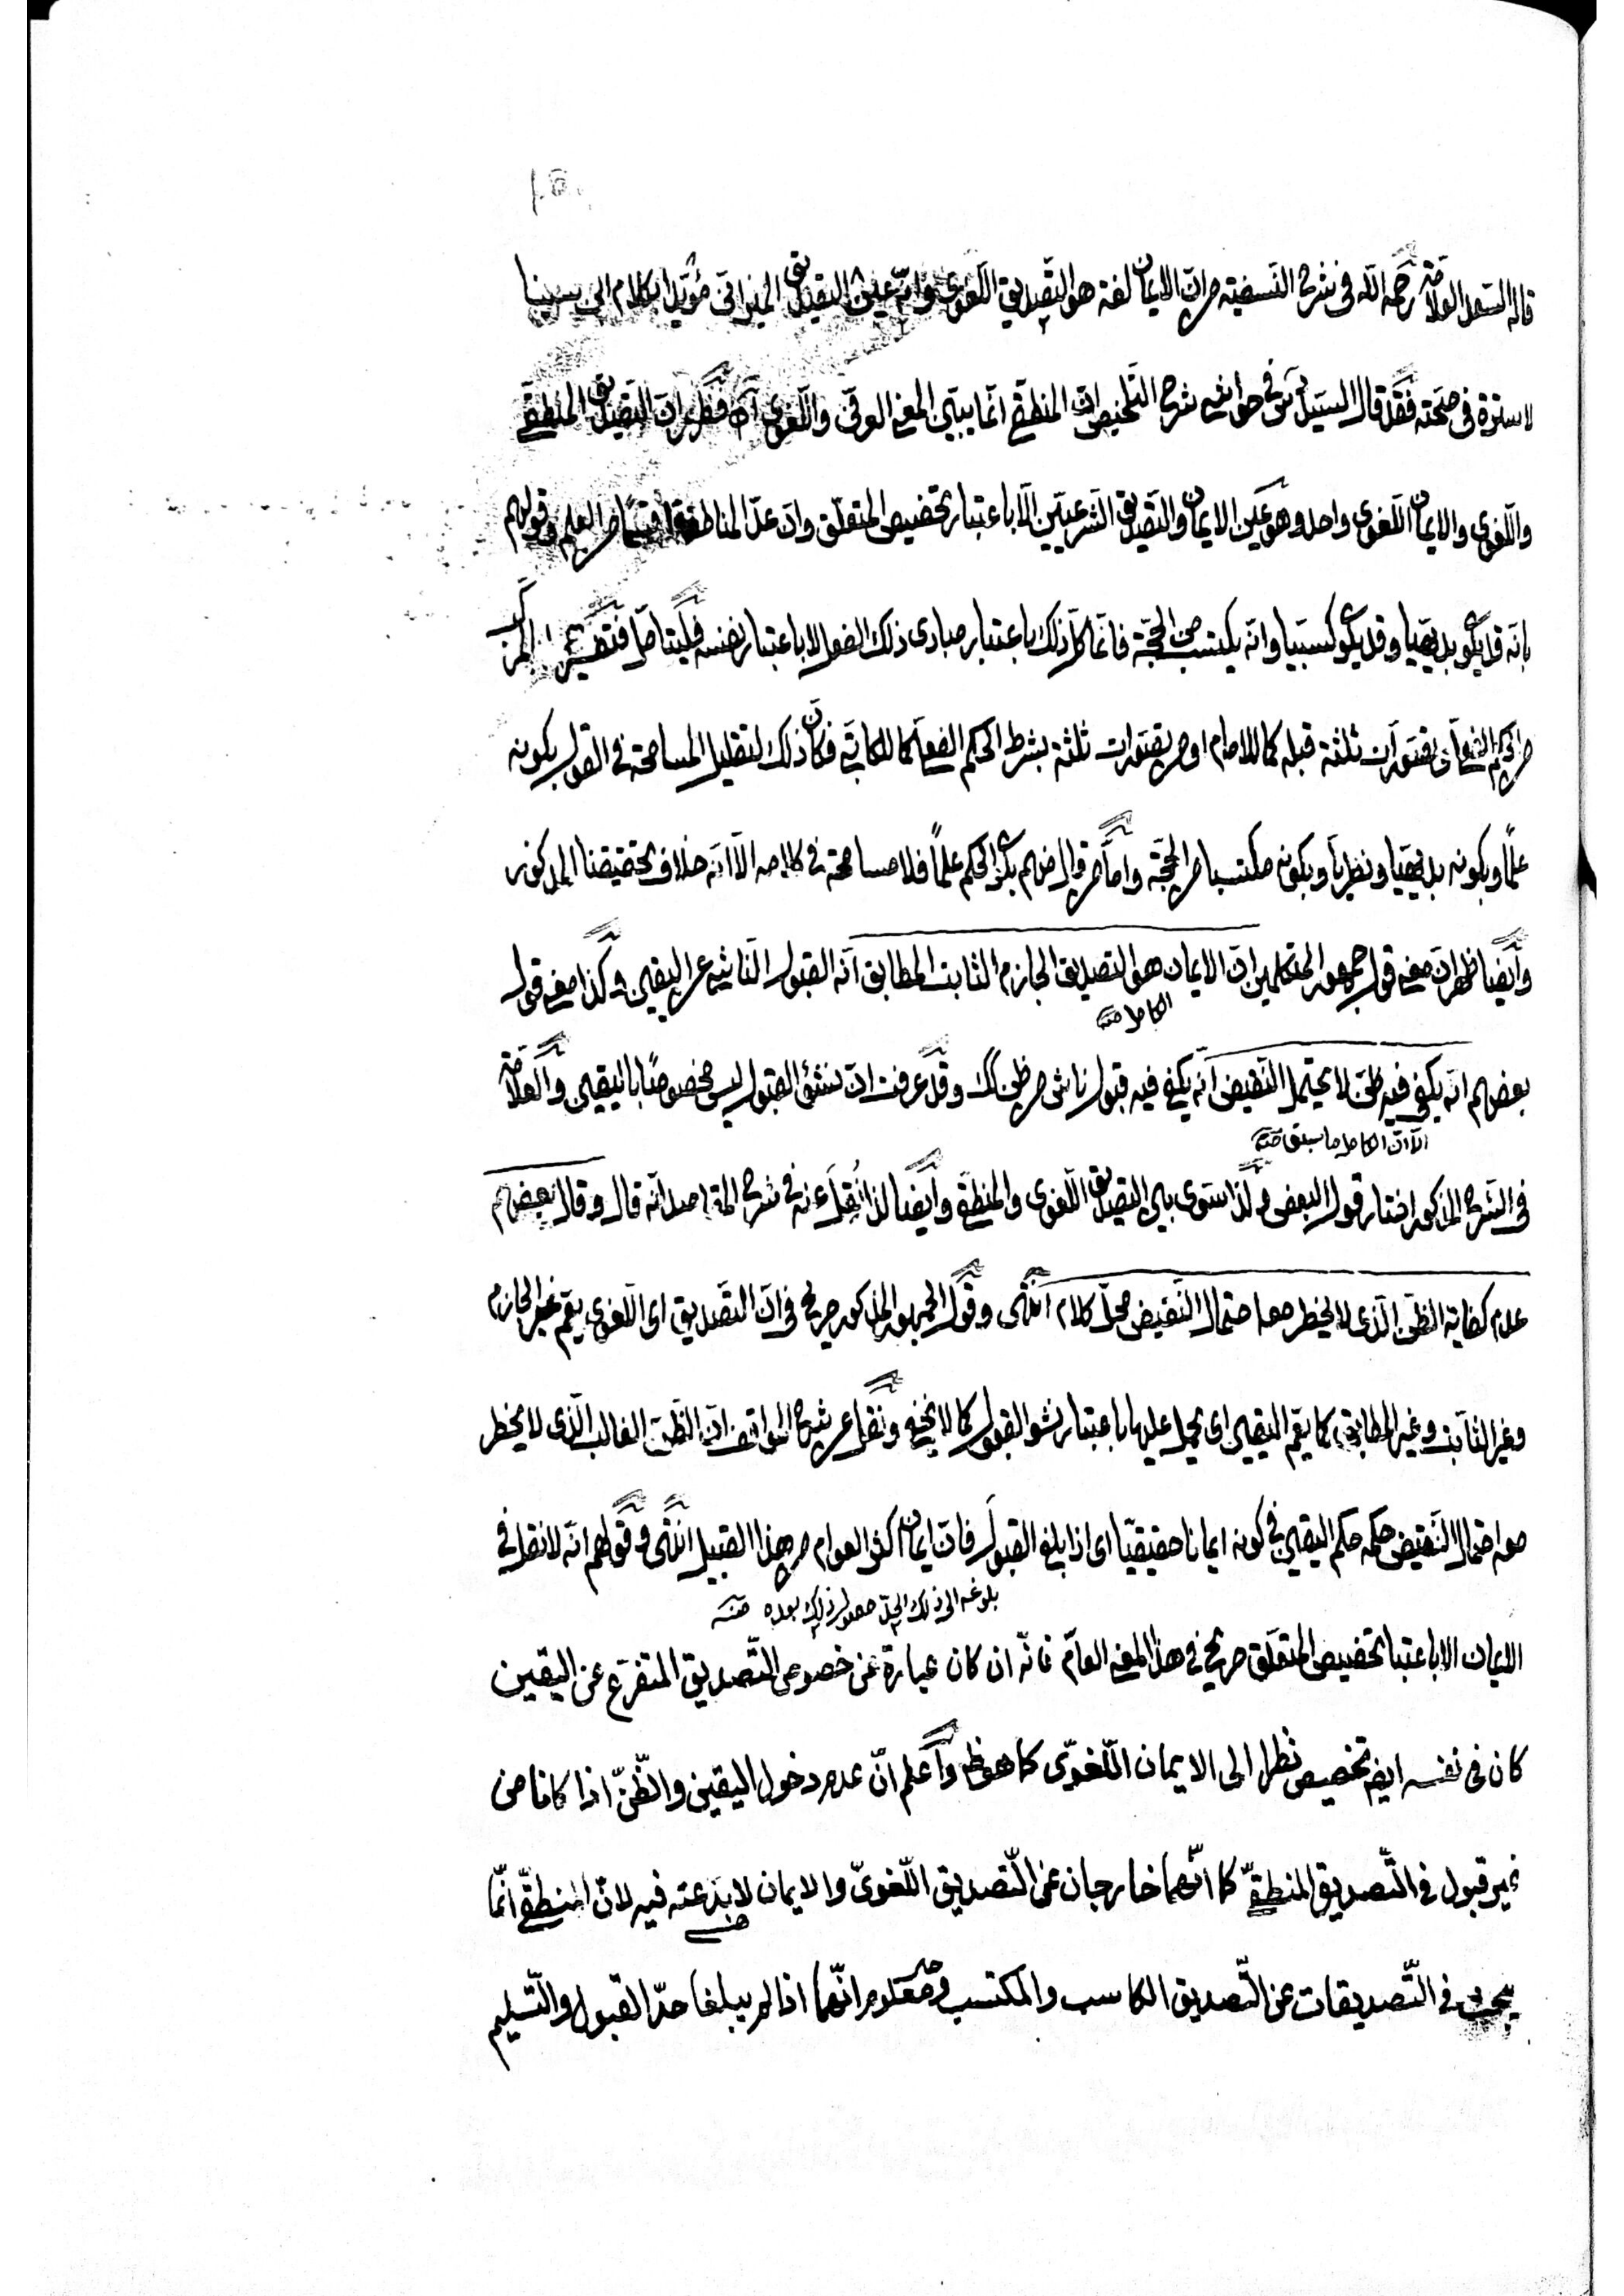 قاله السعد العلامة رحمه الله فى شرح النسفية من ان الايمان لغة هو التصديق اللغوى وانه عين التصديق الميزانى مؤيدا بكلام ابى سينا
لا سترة فى صحته فقد قال السيد س فى حواشى شرح التلخيص ان المنطقى انما يبين المعنى العرفى واللغوى اه فظهر ان التصديق المنطقى
واللغوى والايمان اللغوى واحد وهو عين الايمان والتصديق الشرعيين الا باعتبار تخصيص المتعلق وان عد المناطقة قسما من العلم وقولهم
بانه قد يكون بديهيا وقد يكون كسبيا وانه يكتسب من الحجة فانما كل ذلك باعتبار مبادى ذلك الفعل لا باعتبار نفسه فليتامل فتفسيره المركب
من الحكم الفعلى وتصورات ثلثة قبله كما للامام او من تصورات ثلثة بشرط الحكم الفعلى كما للكاتبى فكان ذلك لتقليل المسامحة فى القول بكونه
علمًا وبكونه بديهيا ونظريا وبكونه مكتسبا من الحجة واما من قال منهم بكون الحكم علمًا فلا مسامحة فى كلامه الا انه خلاف تحقيقنا المذكور
وايضا ظهر ان معنى قول جمهور المتكلمين ان الايمان هو التصديق الجازم الثابت المطابق انه القبول الناشى عن اليقين وكذا معنى قول
الكامل منه
بعضهم انه يكفى فيه ظن لا يحتمل النقيض انه يكفى فيه قبول ناش من ظن كذلك وقد عرفت ان منشئ القبول ليس مخصوصًا باليقين والعلامة
الا ان الكامل ما سبق منه
فى الشرح المذكور اختار قول البعض ولذا سوى بين التصديق اللغوى والمنطقى وايضا لذا نقل عنه فى شرح المقاصد انه قال وقال بعضهم
عدم كفاية الظن الذى لا يخطر معه احتمال النقيض محل كلام انتهى وقول الجمهور المذكور صريح فى ان التصديق اى اللغوى يعم غير الجازم
وغير الثابت وغير المطابق كما يعم اليقين اى يحمل عليها باعتبار نشو القبول كما لا يخفى ونقل عن شرح المواقف ان الظن الغالب الذى لا يخطر
معه احتمال النقيض حكمه حكم اليقين فى كونه ايمانا حقيقيا اى اذا بلغ القبول فان ايمان اكثر العوام من هذا القبيل انتهى وقولهم انه لا نقل فى
بلوغه الى ذلك الحد معه لذلك بعده منه
الايمان الا باعتبار تخصيص المتعلق صريح فى هذا المعنى العام فانه ان كان عبارة عن خصوص التصديق المتفرع عن اليقين
كان فى نفسه ايضا تخصيص نظرا الى الايمان اللغوى كما هو ظ واعلم ان عدم دخول اليقين والظن اذا كانا من
غير قبول فى التصديق المنطقى كما انهما خارجان عن التصديق اللغوى والايمان لا بدعة فيه لان المنطقى انما
منه
يبحث فى التصديقات عن التصديق الكاسب والمكتسب ومعلوم انهما اذا لم يبلغا حد القبول والتسليم